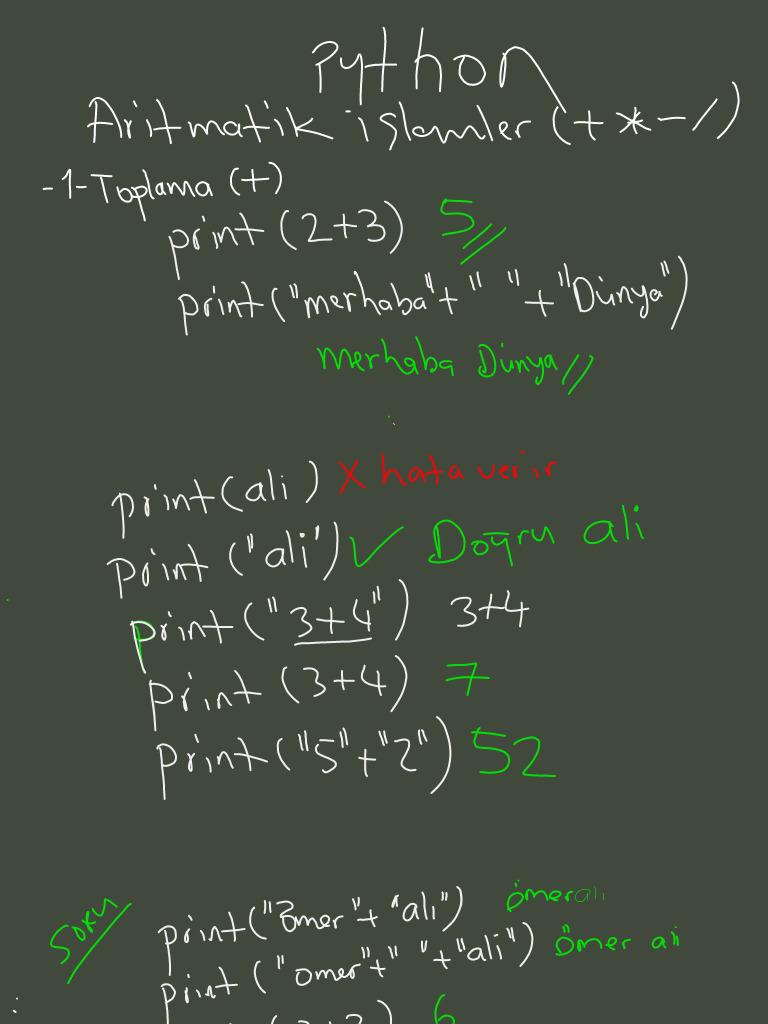 Python
Aritmatik işlemler (+ * - /)
-1- Toplama (+)
print (2+3) 5
print ("merhaba" + " " + "Dünya")
merhaba Dünya
print (ali) X hata verir
print ("ali") ✓ Doğru ali
print ("3+4") 3+4
print (3+4) 7
print ("5"+"2") 52
Soru
print("ömer"+"ali") ömerali
print ("omer"+" "+"ali") ömer ali
6